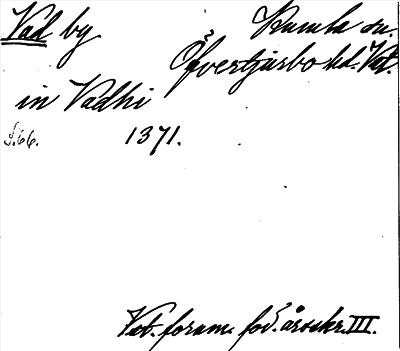 Vad by Kumla sn.
Öfvertjurbo hd. Vst.
in Vadhi
S.66. 1371.
Vst. fornm. för. årsskr. III.